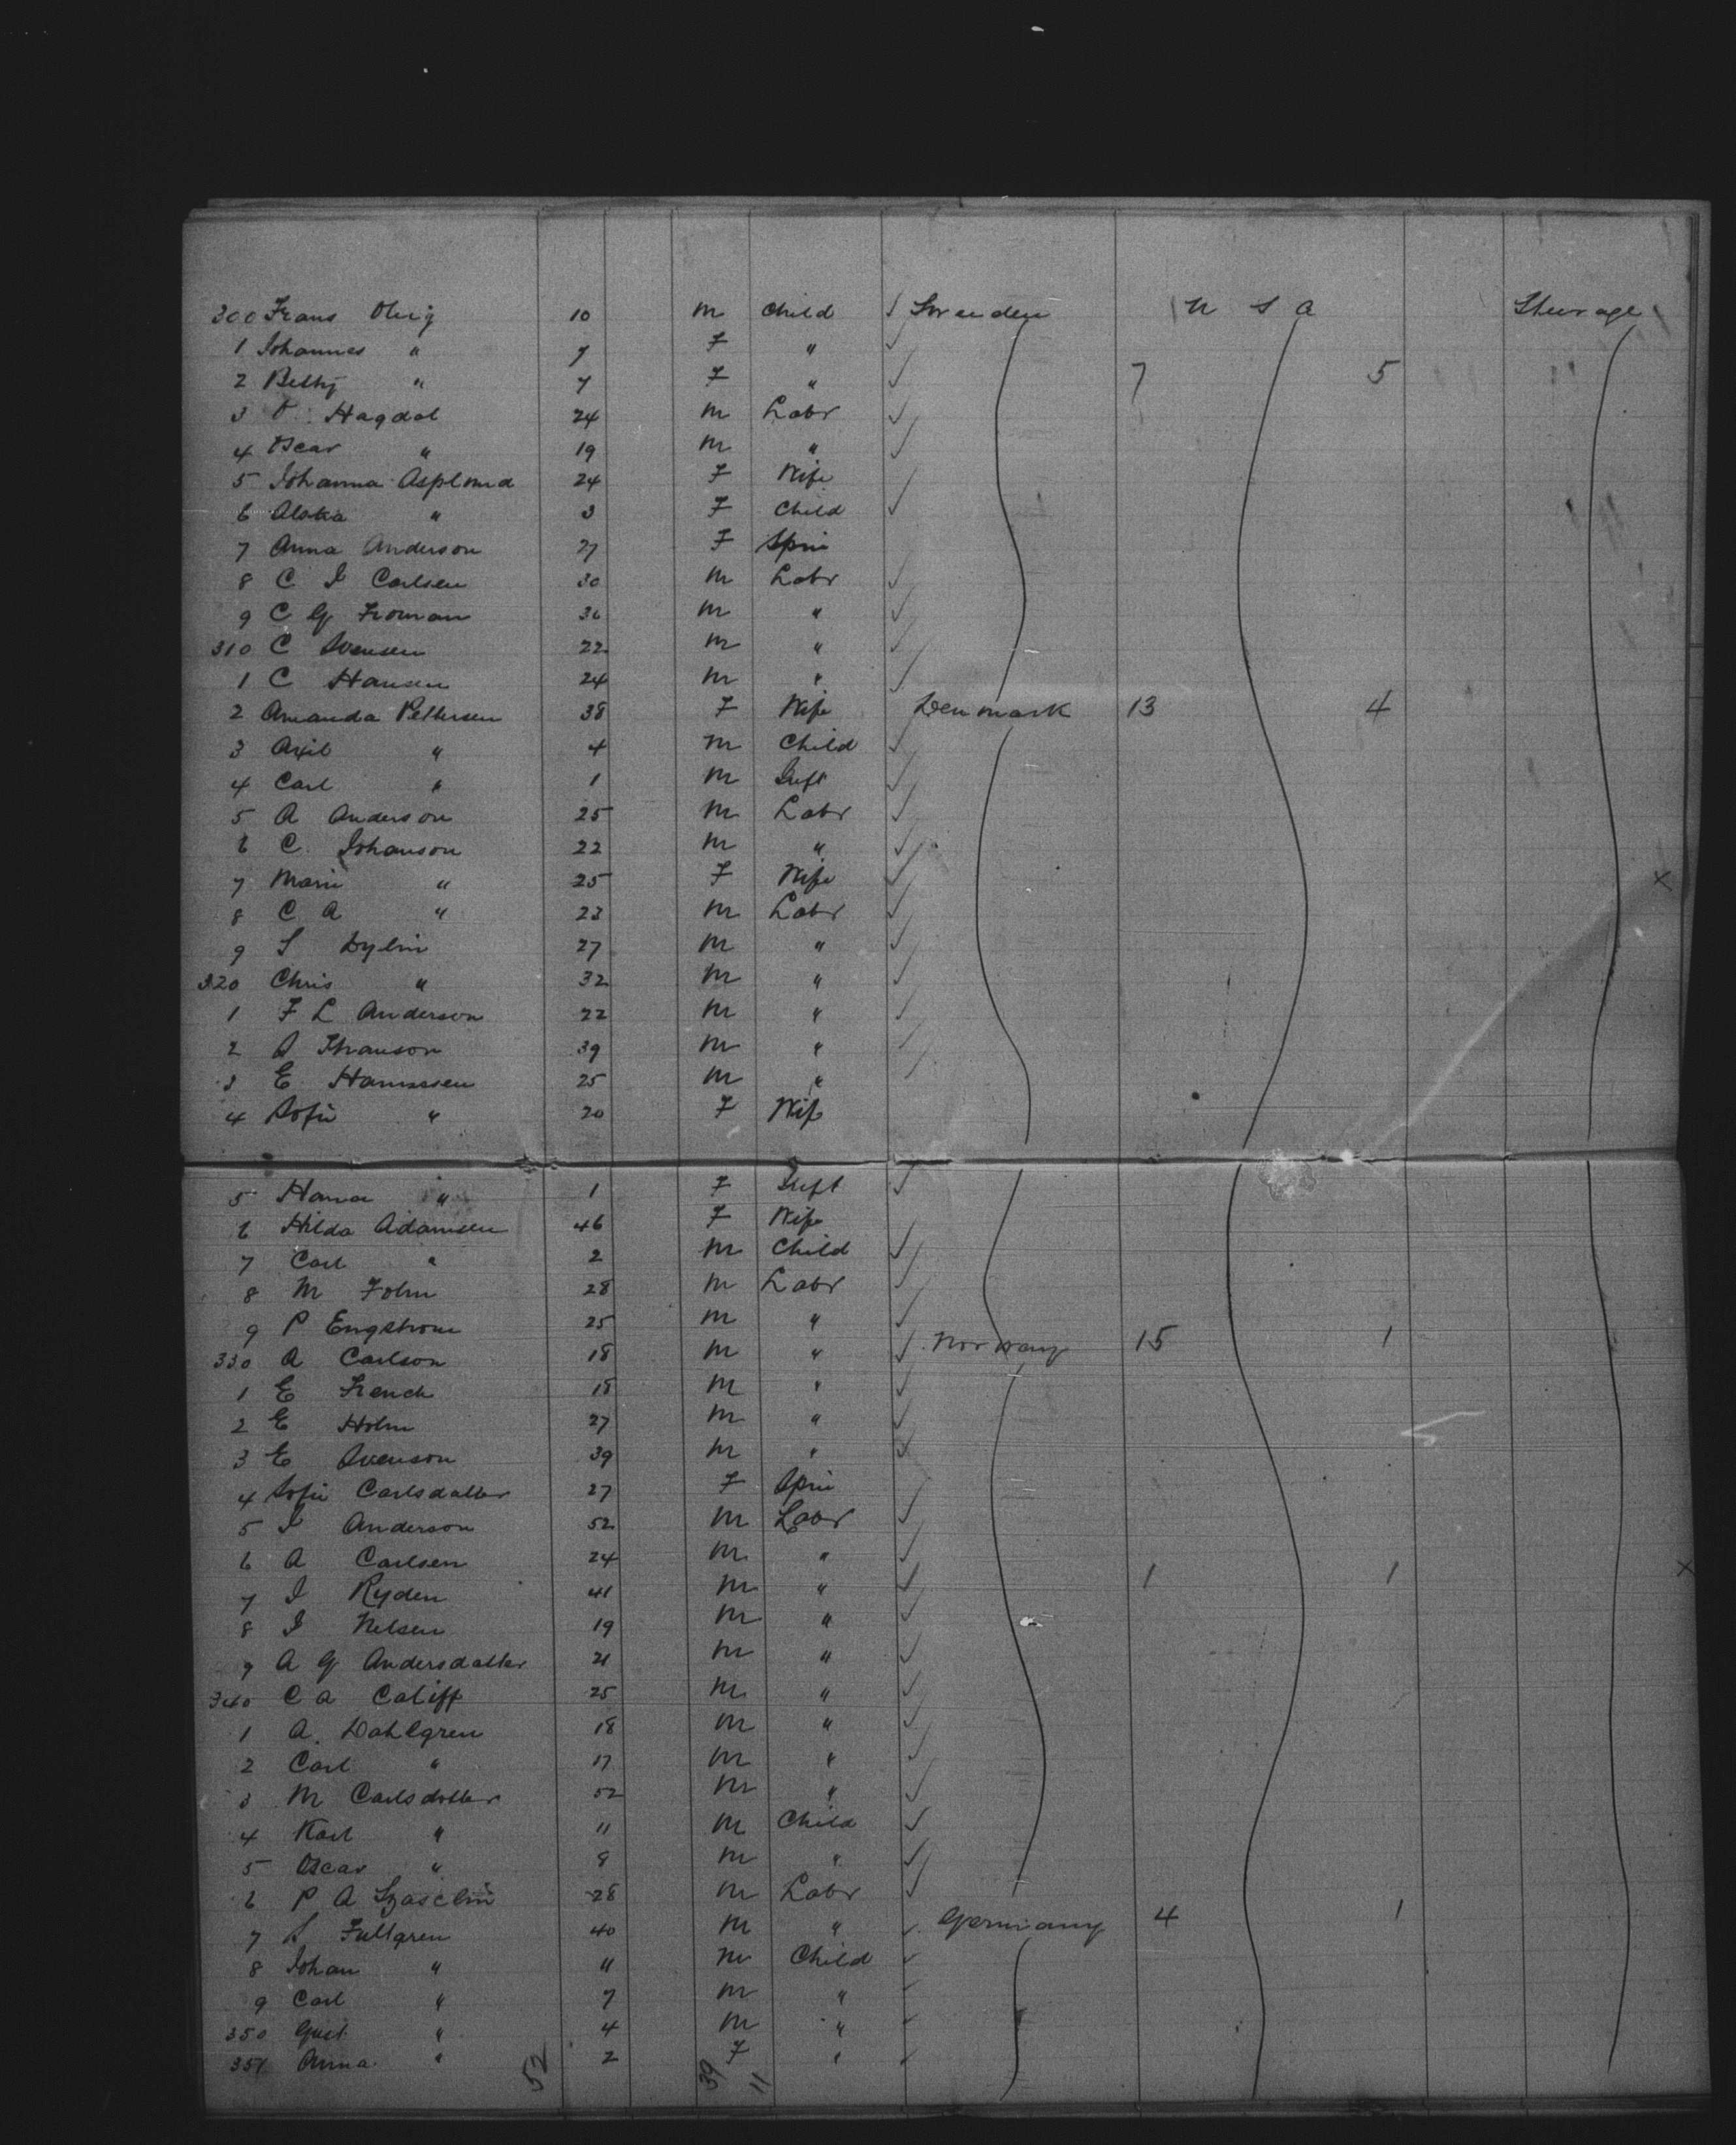 300 Frans Olvig 10 M Child ✓ Sweden U S A Steerage
1 Johannes " 7 F " ✓
2 Betty " 7 F " ✓ 7 5
3 O. Hagdol 24 M Labr ✓
4 Oscar " 19 M " ✓
5 Johanna Asplund 24 F Wife
6 " 3 F Child ✓
7 Anna Anderson 27 F Spin
8 C I Carlsen 30 M Labr ✓
9 C G Froman 36 M " ✓
310 C Svensen 22 M " ✓
1 C Hansen 24 M " ✓
2 Amanda Pettersen 38 F Wife Denmark 13 4
3 Axil " 4 M Child ✓
4 Carl " 1 M Inft ✓
5 A Anderson 25 M Labr ✓
6 C. Johanson 22 M " ✓
7 Marie " 25 F Wife ✓ X
8 C A " 23 M Labr ✓
9 S Dylin 27 M " ✓
320 Chris " 32 M " ✓
1 F L Anderson 22 M " ✓
2 39 M " ✓
3 E Hanssen 25 M "
4 Sofie " 20 F Wife
5 Hana " 1 F Inft ✓
6 Hilda Adamsen 46 F Wife
7 Carl " 2 M Child ✓
8 M Folm 28 M Labr ✓
9 P Engstrom 25 M " ✓
330 A Carlson 18 M " ✓ Norway 15 1
1 E French 18 M " ✓
2 E Holm 27 M " ✓
3 E Svenson 39 M " ✓
4 Sofie Carlsdatter 27 F Spin
5 I Anderson 52 M Labr ✓
6 A Carlsen 24 M " ✓
7 I Ryden 41 M " ✓ 1 1 X
8 I Nelsen 19 M " ✓
9 A G Andersdatter 21 M " ✓
340 C A Califf 25 M " ✓
1 A. Dahlgren 18 M " ✓
2 Carl " 17 M " ✓
3 M Carlsdatter 52 M " ✓
4 Karl " 11 M Child ✓
5 Oscar " 9 M " ✓
6 P A 28 M Labr ✓
7 S Fullgren 40 M " ✓ Germany 4 1
8 Johan " 11 M Child ✓
9 Carl " 7 M " ✓
350 Gust " 4 M " ✓
351 Anna " 2 F " ✓
52 39 11